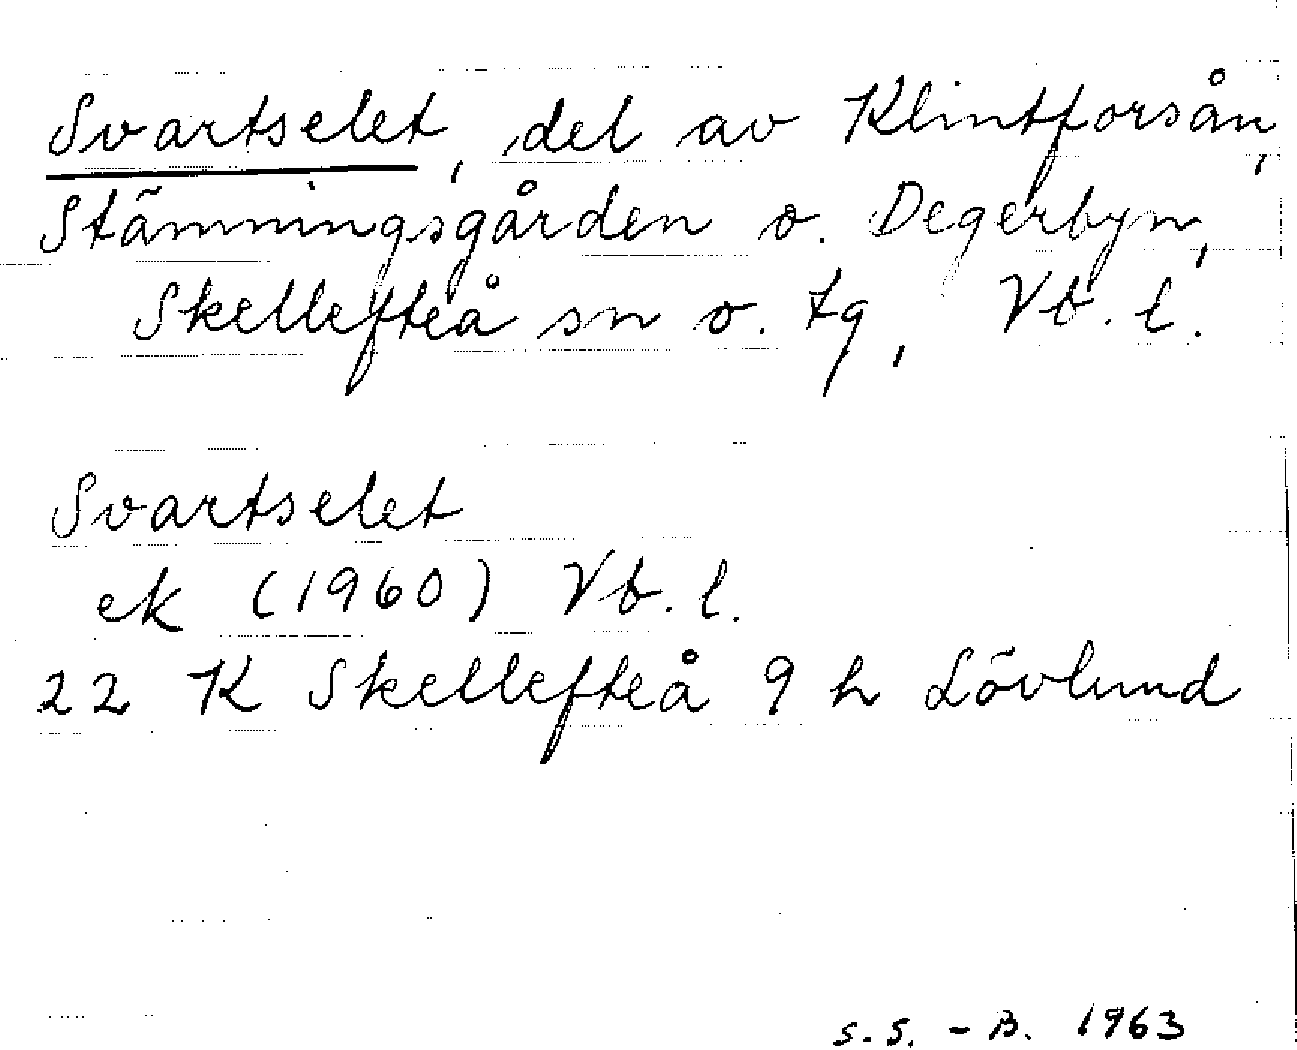 Svartselet, del av Klintforsån,
Stämningsgården o. Degerbyn,
Skellefteå sn o. tg, Vb. l.
Svartselet
ek (1960) Vb. l.
22 K Skellefteå 9 h Lövlund
S.S. - B. 1963